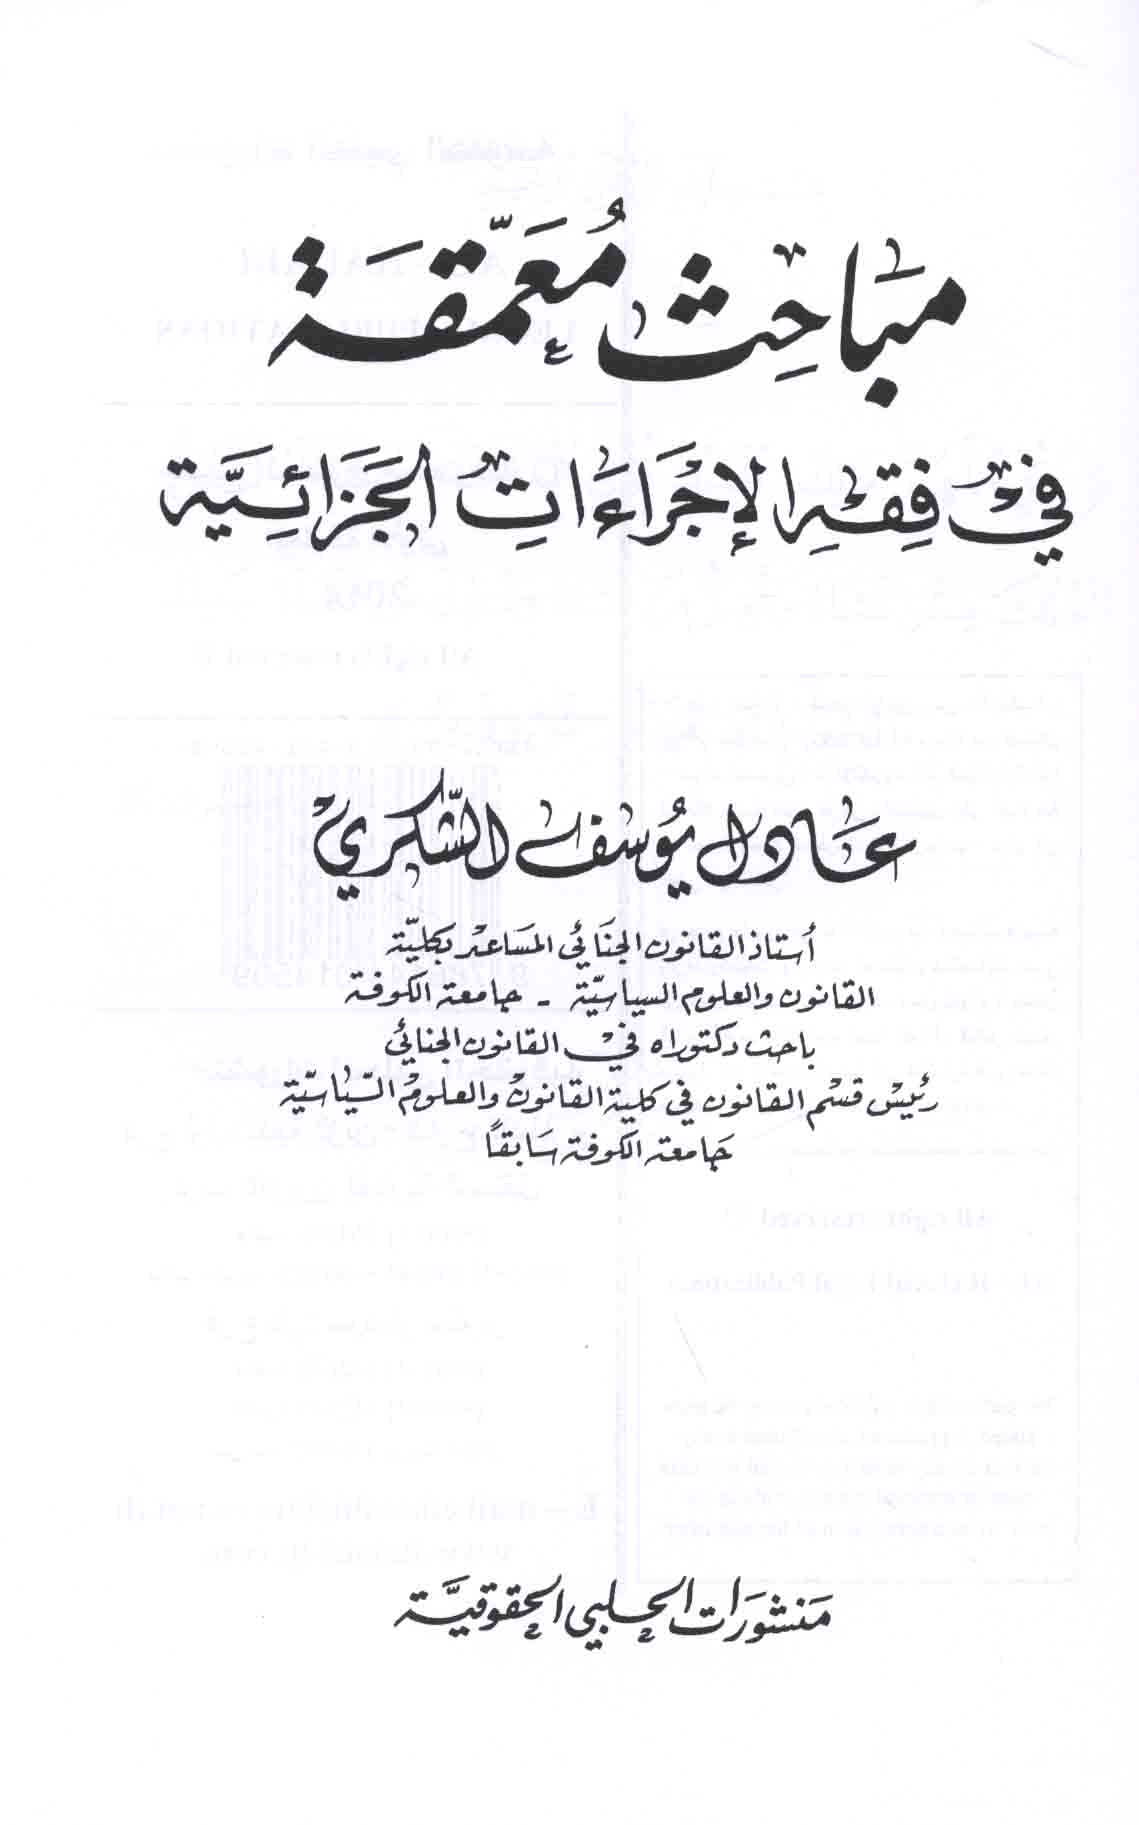 مباحث معمّقة
في فقه الإجراءات الجزائية
عادل يوسف الشكري
أستاذ القانون الجنائي المساعد بكليّة
القانون والعلوم السياسيّة - جامعة الكوفة
باحث دكتوراه في القانون الجنائي
رئيس قسم القانون في كلية القانون والعلوم السّياسيّة
جامعة الكوفة سابقاً
منشورات الحلبي الحقوقيّة